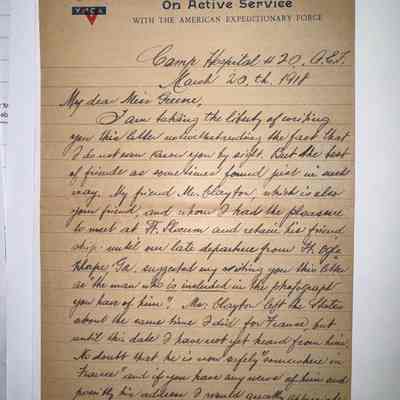 Y.M.C.A
On Active Service
WITH THE AMERICAN EXPEDITIONARY FORCE
Camp Hospital #20, A.E.F.
March 20, th. 1918
My dear Miss Greene,
I am taking the liberty of writing
you this letter notwithstanding the fact that
I do not even know you by sight. But the best
of friends are sometimes found just in such
way. My friend Mr. Clayton, which is also
your friend, and whom I had the pleasure
to meet at Ft. Slocum and retain his friend
ship until our late departure from Ft. Ogle
thorpe, Ga. suggested my writing you this letter
as "the man who is included in the photograph
you have of him". Mr. Clayton left the States
about the same time I did for France, but
until this date I have not yet heard from him.
No doubt that he is now safely "somewhere in
France" and if you have any news of him and
possibly his address I would greatly appreciate